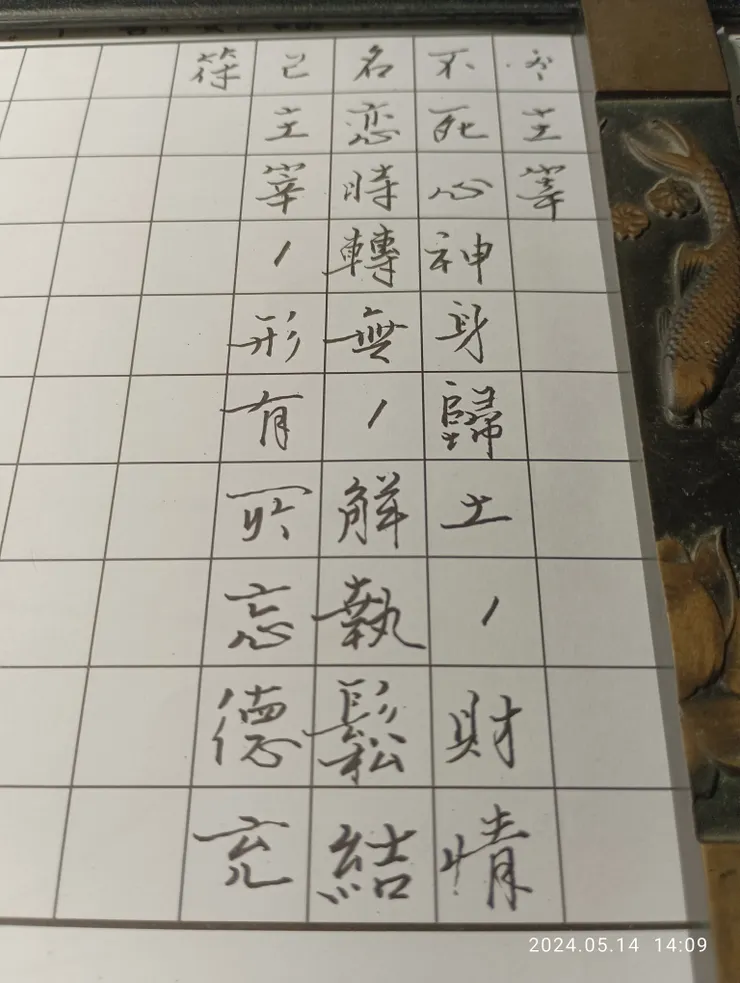 主宰
不死心神身歸土，財情
名恋時轉無，解執鬆結
己主宰，形有所忘德充
符
2024.05.14 14:09